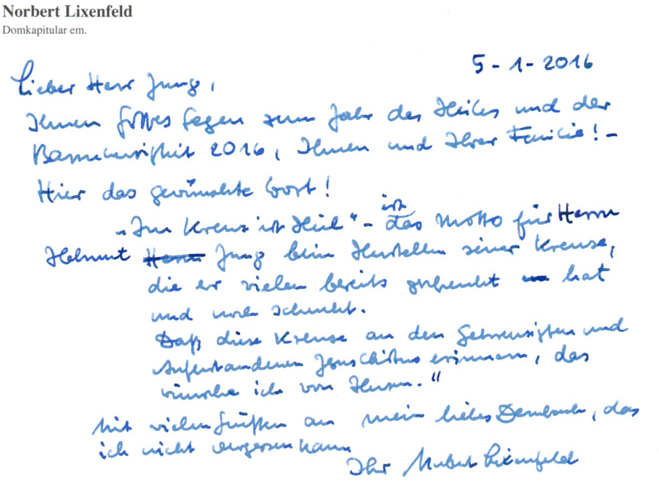 Norbert Lixenfeld
Domkapitular em.
5-1-2016
Lieber Herr Jung,
Ihnen Gottes Segen zum Jahr des Heiles und der
Barmherzigkeit 2016, Ihnen und Ihrer Familie! –
Hier das gewünschte Wort!
„Im Kreuz ist Heil" – ist das Motto für Herrn
Helmut Jung beim Herstellen seiner Kreuze,
die er vielen bereits geschenkt hat
und noch schenkt.
Daß diese Kreuze an den Gekreuzigten und
Auferstandenen Jesus Christus erinnern, das
wünsche ich von Herzen."
Mit vielen Grüßen an mein liebes Dernbach, das
ich nicht vergessen kann
Ihr Norbert Lixenfeld